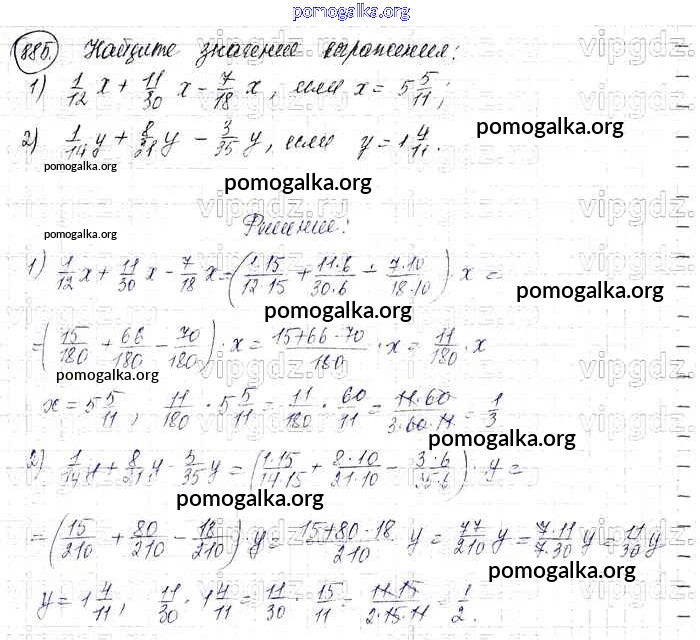 pomogalka.org
885. Найдите значение выражения:
1) 1/12 x + 11/30 x - 7/18 x, если x = 5 5/11;
2) 1/14 y + 8/21 y - 3/35 y, если y = 1 4/11.
pomogalka.org
pomogalka.org
pomogalka.org
vipgdz.ru
Решение:
pomogalka.org
1) 1/12 x + 11/30 x - 7/18 x = (1·15/12·15 + 11·6/30·6 - 7·10/18·10) · x =
pomogalka.org
pomogalka.org
= (15/180 + 66/180 - 70/180) · x = 15+66-70/180 · x = 11/180 · x
pomogalka.org
x = 5 5/11, 11/180 · 5 5/11 = 11/180 · 60/11 = 11·60/3·60·11 = 1/3
pomogalka.org
2) 1/14 y + 8/21 y - 3/35 y = (1·15/14·15 + 8·10/21·10 - 3·6/35·6) · y =
pomogalka.org
= (15/210 + 80/210 - 18/210) · y = 15+80-18/210 y = 77/210 y = 7·11/7·30 y = 11/30 y
pomogalka.org
y = 1 4/11, 11/30 · 1 4/11 = 11/30 · 15/11 = 11·15/2·15·11 = 1/2.